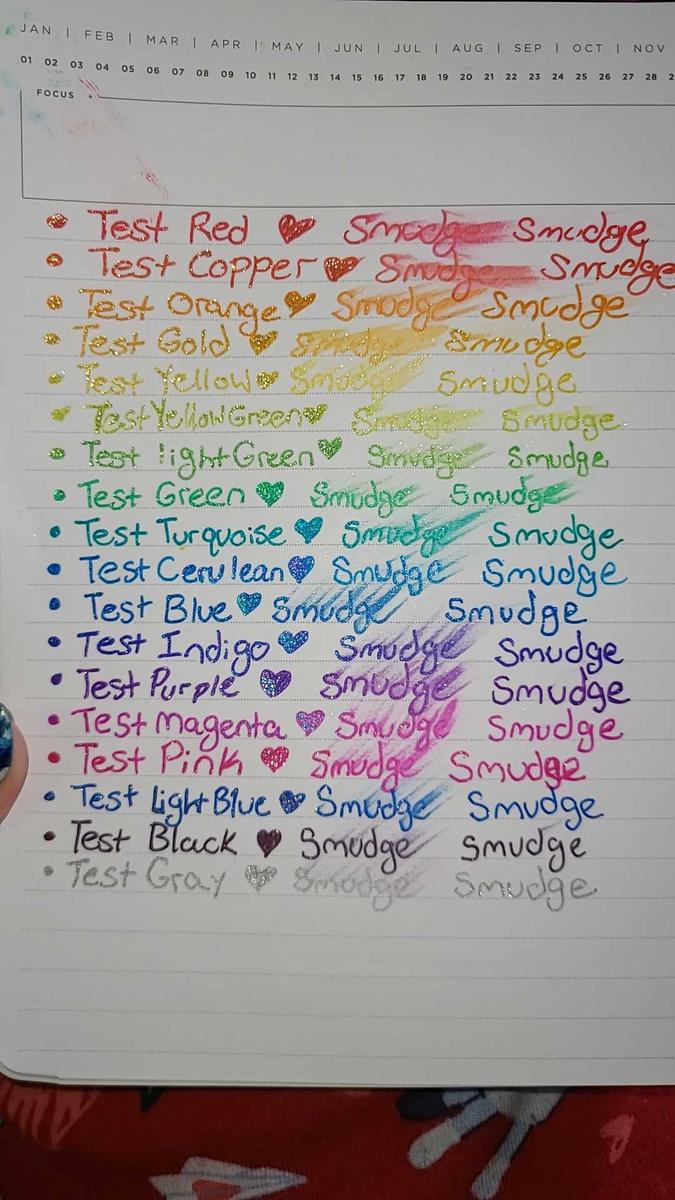 JAN | FEB | MAR | APR | MAY | JUN | JUL | AUG | SEP | OCT | NOV
01 02 03 04 05 06 07 08 09 10 11 12 13 14 15 16 17 18 19 20 21 22 23 24 25 26 27 28 2
FOCUS
• Test Red ♥ Smudge Smudge
• Test Copper ♥ Smudge Smudge
• Test Orange ♥ Smudge Smudge
• Test Gold ♥ Smudge Smudge
• Test Yellow ♥ Smudge Smudge
• Test Yellow Green ♥ Smudge Smudge
• Test light Green ♥ Smudge Smudge
• Test Green ♥ Smudge Smudge
• Test Turquoise ♥ Smudge Smudge
• Test Cerulean ♥ Smudge Smudge
• Test Blue ♥ Smudge Smudge
• Test Indigo ♥ Smudge Smudge
• Test Purple ♥ Smudge Smudge
• Test magenta ♥ Smudge Smudge
• Test Pink ♥ Smudge Smudge
• Test Light Blue ♥ Smudge Smudge
• Test Black ♥ Smudge Smudge
• Test Gray ♥ Smudge Smudge